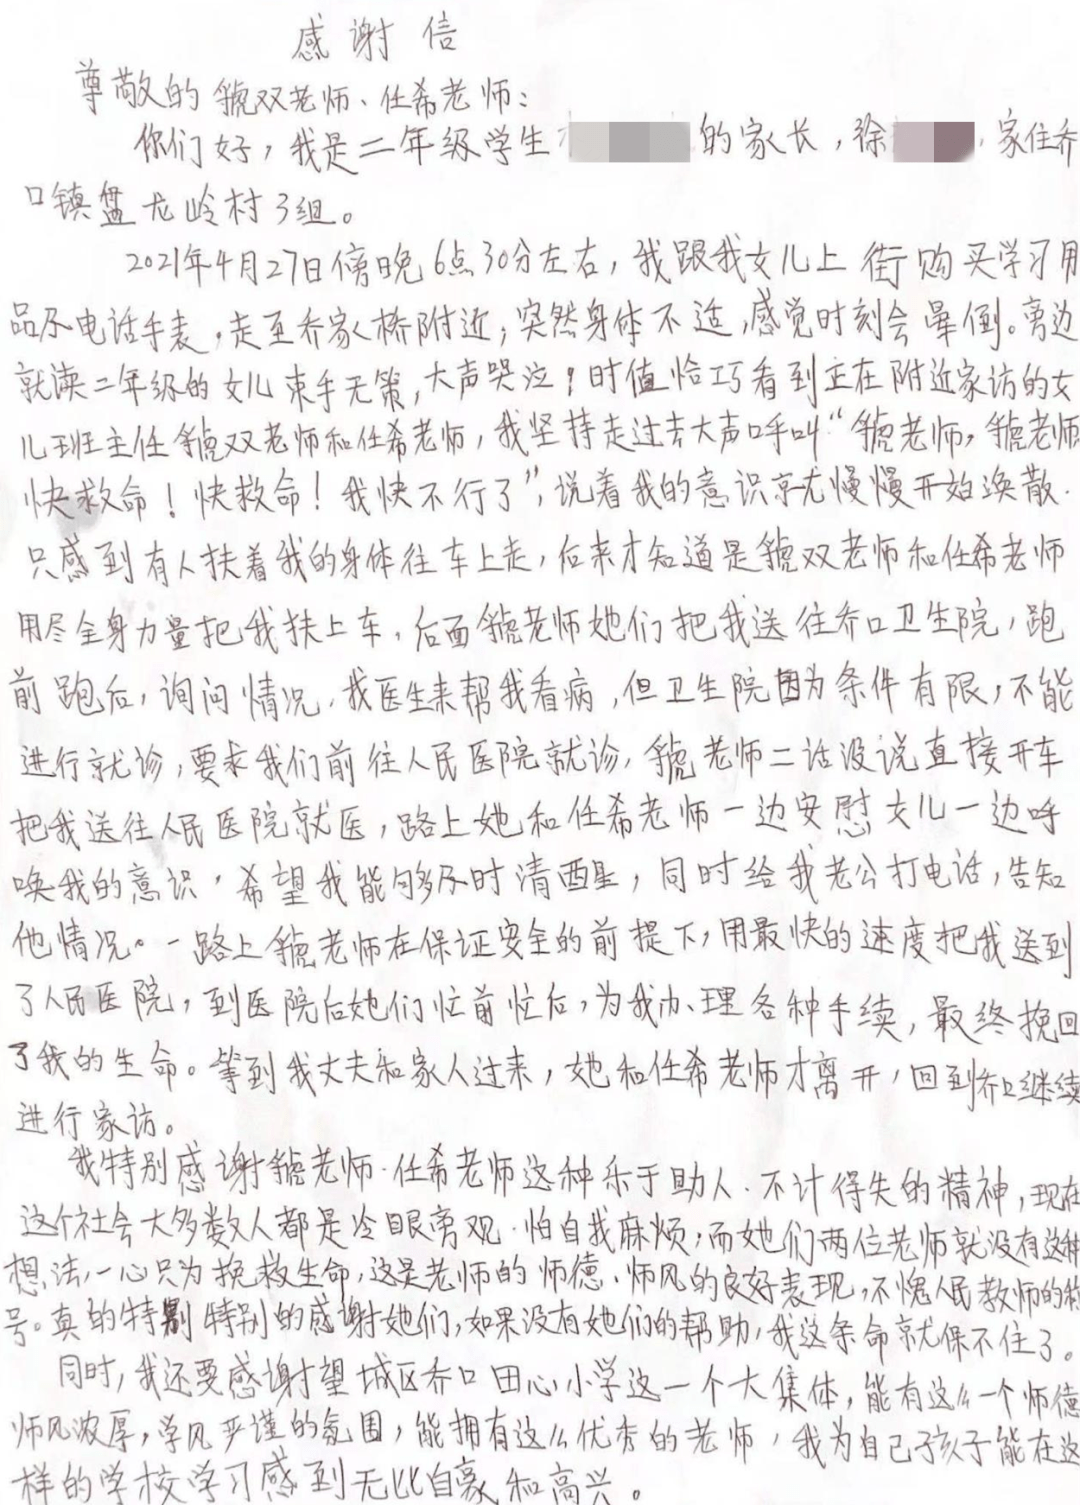 感谢信
尊敬的虢双老师、任希老师：
你们好，我是二年级学生 的家长，徐 ，家住乔
口镇盘龙岭村3组。
2021年4月27日傍晚6点30分左右，我跟我女儿上街购买学习用
品及电话手表，走至乔家桥附近，突然身体不适，感觉时刻会晕倒。旁边
就读二年级的女儿束手无策，大声哭泣，时值恰巧看到正在附近家访的女
儿班主任虢双老师和任希老师，我坚持走过去大声呼叫“虢老师，虢老师
快救命！快救命！我快不行了”，说着我的意识就慢慢开始涣散.
只感到有人扶着我的身体往车上走，后来才知道是虢双老师和任希老师
用尽全身力量把我扶上车，后面虢老师她们把我送往乔口卫生院，跑
前跑后，询问情况，找医生来帮我看病，但卫生院因为条件有限，不能
进行就诊，要求我们前往人民医院就诊，虢老师二话没说直接开车
把我送往人民医院就医，路上她和任希老师一边安慰女儿一边呼
唤我的意识，希望我能够及时清醒，同时给我老公打电话，告知
他情况。一路上虢老师在保证安全的前提下，用最快的速度把我送到
了人民医院，到医院后她们忙前忙后，为我办理各种手续，最终挽回
了我的生命。等到我丈夫和家人过来，她和任希老师才离开，回到乔口继续
进行家访。
我特别感谢虢老师.任希老师这种乐于助人.不计得失的精神，现在
这个社会大多数人都是冷眼旁观.怕自我麻烦，而她们两位老师就没有这种
想法，一心只为挽救生命，这是老师的师德、师风的良好表现，不愧人民教师的称
号。真的特别特别的感谢她们，如果没有她们的帮助，我这条命就保不住了。
同时，我还要感谢望城区乔口田心小学这一个大集体，能有这么一个师德
师风浓厚，学风严谨的氛围，能拥有这么优秀的老师，我为自己孩子能在这
样的学校学习感到无比自豪和高兴。